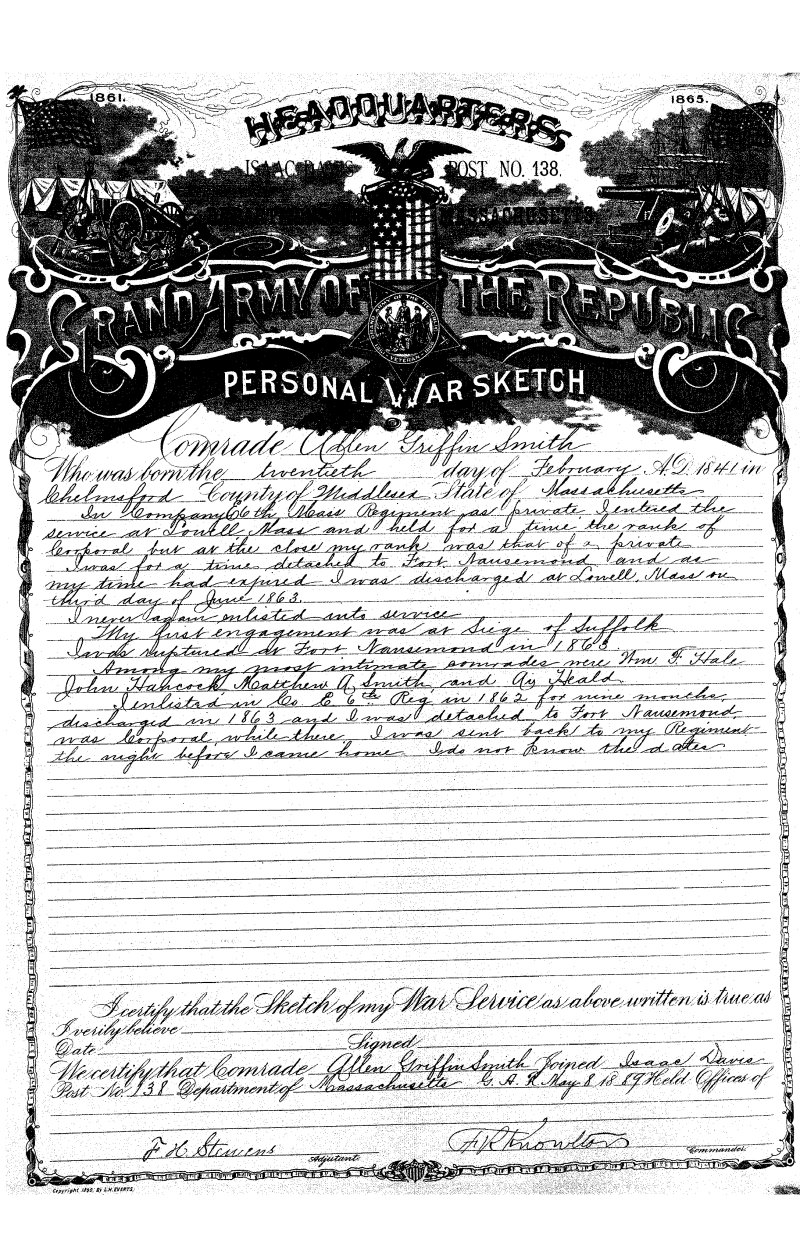 1861.
1865.
HEADQUARTERS
ISAAC DAVIS POST NO. 138.
DEPARTMENT OF MASSACHUSETTS
GRAND ARMY OF THE REPUBLIC
VETERAN
PERSONAL WAR SKETCH
Comrade Allen Griffin Smith
Who was born the twentieth day of February A.D. 1841 in
Chelmsford County of Middlesex State of Massachusetts
In Company 6th Mass Regiment as private I entered the
service at Lowell Mass and held for a time the rank of
Corporal but at the close my rank was that of a private
I was for a time detached to Fort Nausemond and as
my time had expired I was discharged at Lowell, Mass on
third day of June 1863.
I never again enlisted into service
My first engagement was at Siege of Suffolk
I was ruptured at Fort Nausemond in 1863
Among my most intimate comrades were Wm F. Hale
John Hancock, Matthew A. Smith, and Heald
I enlisted in Co E. 6th Reg in 1862 for nine months,
discharged in 1863 and I was detached to Fort Nausemond,
was Corporal, while there, I was sent back to my Regiment
the night before I came home I do not know the dates
I certify that the Sketch of my War Service as above written is true as
I verily believe
Date Signed
We certify that Comrade Allen Griffin Smith Joined Isaac Davis
Post No. 138 Department of Massachusetts G. A. R. May 8 1889 Held Offices of
F H Stevens Adjutant. F R Knowlton Commander.
Copyright 1890, By L.H. EVERTS.